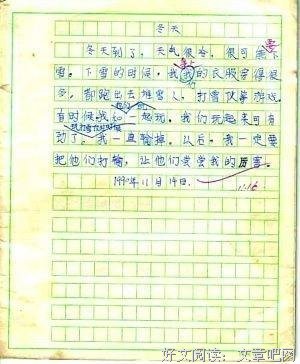 冬天
冬天到了，天气很冷，很可能下
雪。下雪的时候，我我的衣服穿得很
多，都跑出去堆雪人，打雪仗等游戏。
有时候我和一起玩，我们玩起来可有
动了。我一直输掉。以后，我一定要
把他们打输，让他们尝尝我的厉害。
1990年11月19日
11.16
好文阅读：文章吧网